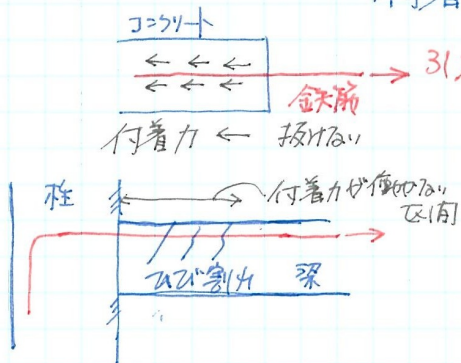 コンクリート
引
鉄筋
付着力 ← 抜けない
柱
付着力が働かない
区間
ひび割れ 梁